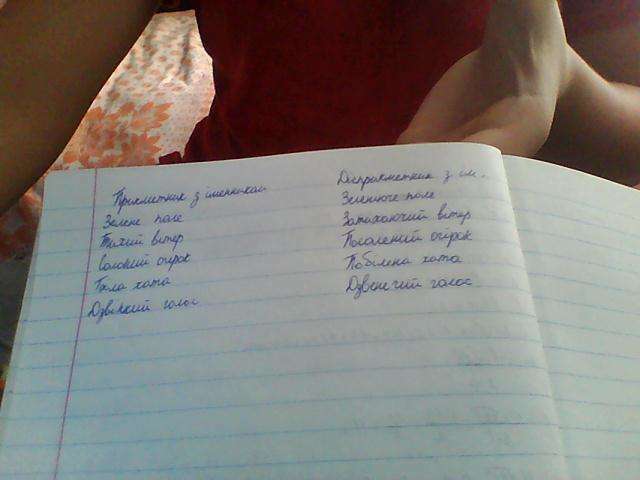 Прикметник з іменником
Зелене поле
Тихий вітер
Солоний огірок
Біла хата
Дзвінкий голос
Дієприкметник з ім.
Зеленюче поле
Затихаючий вітер
Посолений огірок
Побілена хата
Дзвенячий голос